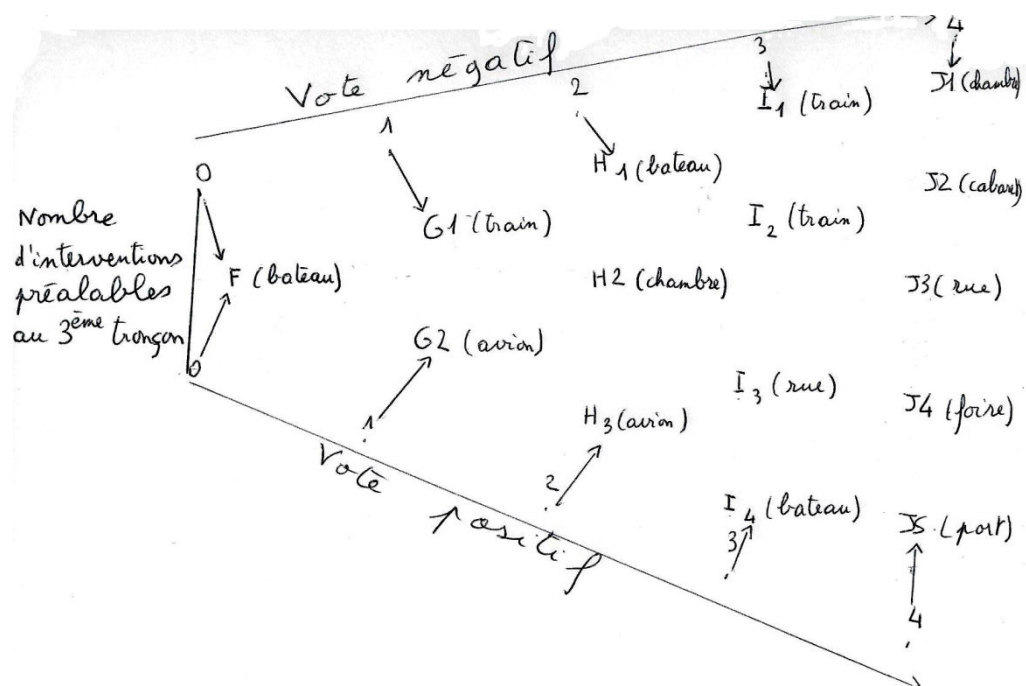 Vote négatif
0
1
2
3
4
Nombre
d'interventions
préalables
au 3ème tronçon
F (bateau)
G1 (train)
G2 (avion)
H1 (bateau)
H2 (chambre)
H3 (avion)
I1 (train)
I2 (train)
I3 (rue)
I4 (bateau)
J1 (chambre)
J2 (cabaret)
J3 (rue)
J4 (foire)
J5 (port)
0
1
2
3
4
Vote positif